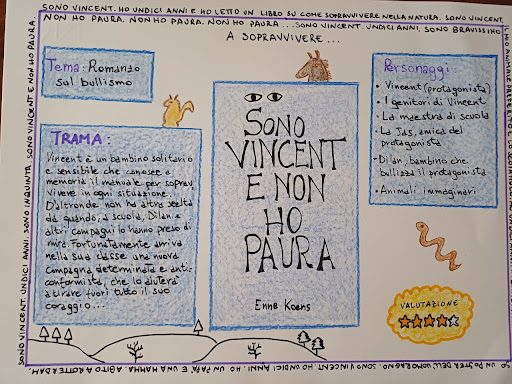 SONO VINCENT. HO UNDICI ANNI E HO LETTO UN LIBRO SU COME SOPRAVVIVERE NELLA NATURA. SONO VINCENT.
NON HO PAURA. NON HO PAURA. NON HO PAURA ... SONO VINCENT. UNDICI ANNI, SONO BRAVISSIMO
A SOPRAVVIVERE...
Tema: Romanzo
sul bullismo
TRAMA:
Vincent è un bambino solitario
e sensibile che conosce a
memoria il manuale per soprav
vivere in ogni situazione.
D'altronde non ha altra scelta
da quando, a scuola, Dilan e
altri compagni lo hanno preso di
mira. Fortunatamente arriva
nella sua classe una nuova
compagna, determinata e anti-
conformista, che lo aiuterà
a tirare fuori tutto il suo
coraggio...
SONO
VINCENT
E NON
HO
PAURA
Enne Koens
Personaggi:
• Vincent (protagonista)
• I genitori di Vincent
• La maestra di scuola
• La Jas, amica del
protagonista
• Dilan, bambino che
bullizza il protagonista
• Animali immaginari
VALUTAZIONE
SONO VINCENT. UNDICI ANNI. SONO IN QUINTA. SONO VINCENT E NON HO PAURA.
SONO VINCENT. HO UNDICI ANNI. HO UN PAPÀ E UNA MAMMA. ABITO A ROTTERDAM.